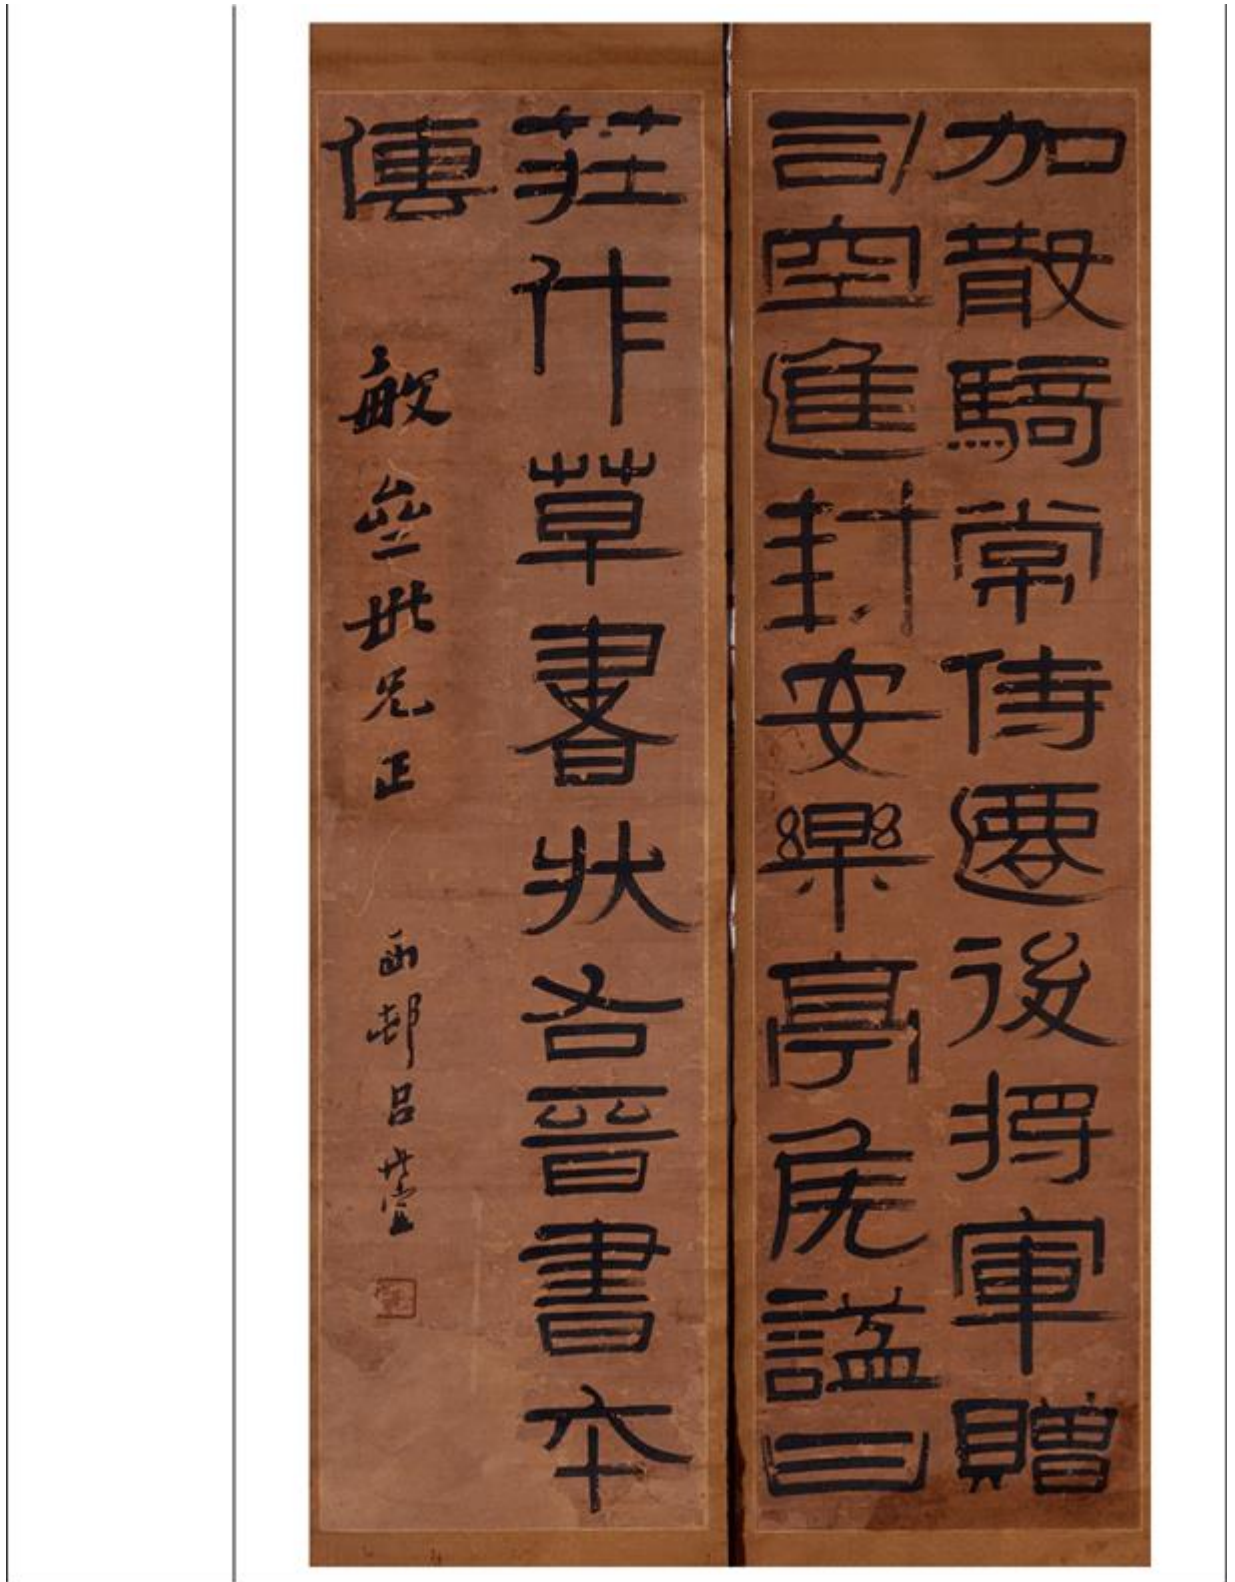 加散騎常侍遷後將軍贈
司空進封安樂亭侯謚曰
莊作草書狀右晉書本
傳
敏世兄正
西邨呂世宜